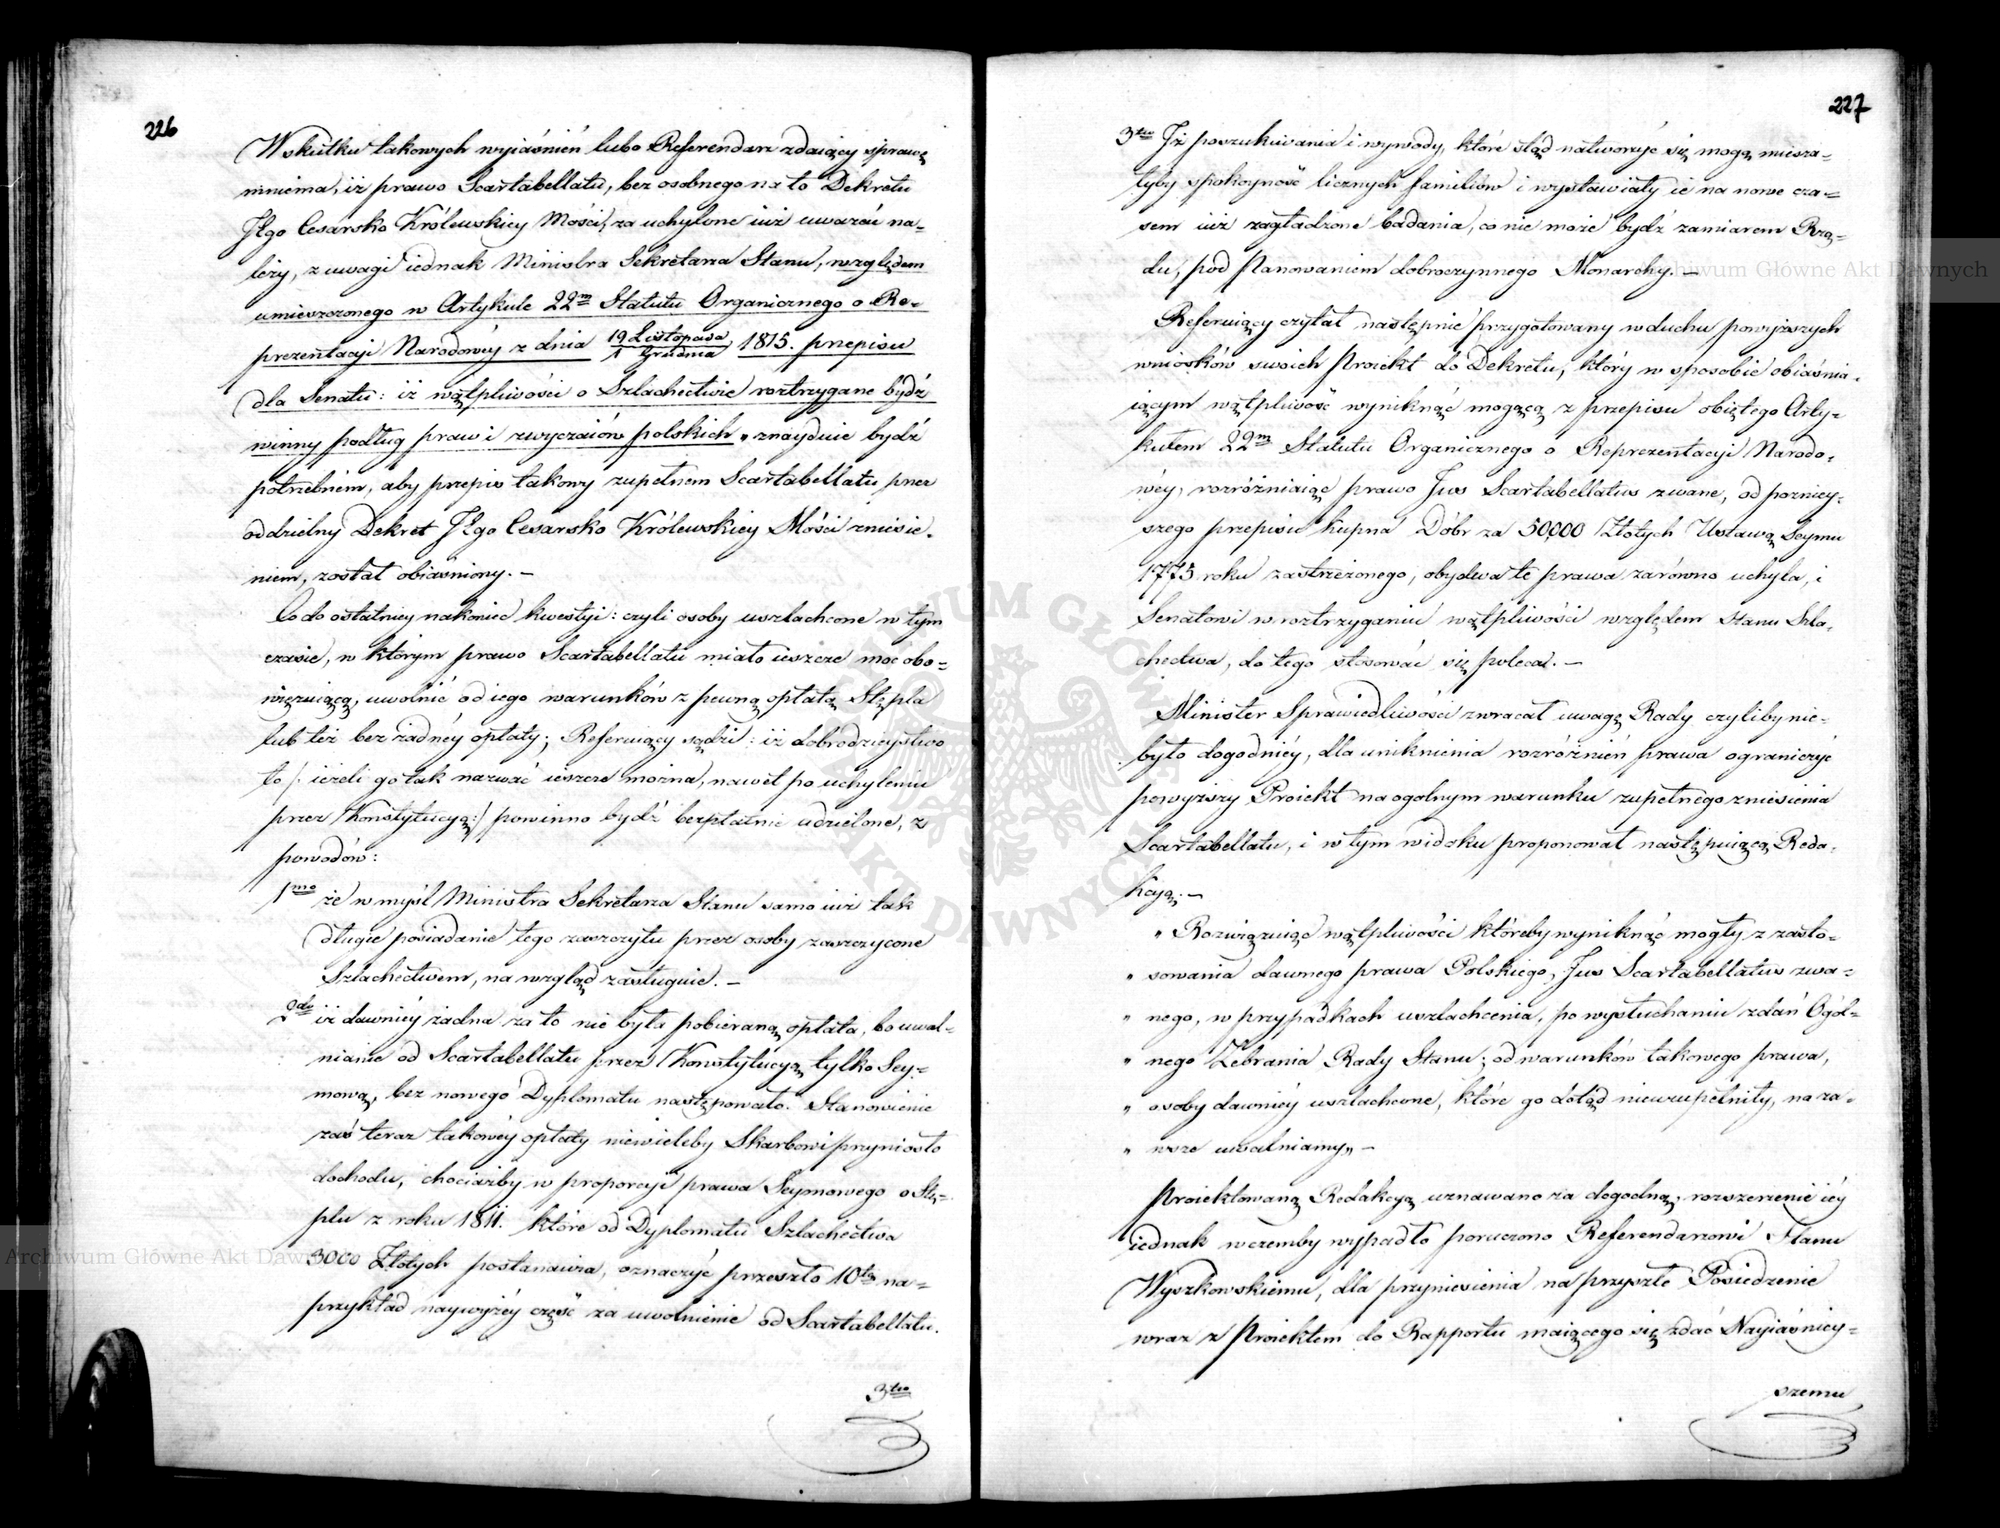 226
Wskutku takowych wyiaśnień lubo Referendarz zdaiący sprawę
mniema, iż prawo Scartabellatu, bez osobnego na to Dekretu
Jego Cesarsko Królewskiey Mości, za uchylone iuż uważać na-
leży, z uwagi iednak Ministra Sekretarza Stanu, względem
umieszczonego w Artykule 22m Statutu Organicznego o Re-
prezentacyi Narodowéy z dnia 19 Listopada / 1 Grudnia 1815. przepisu
dla Senatu: iż wątpliwości o Szlachectwie roztrzygane bydź
winny podług praw i zwyczaiów polskich „ znayduie bydź
potrzebném, aby przepis takowy zupełnem Scartabellatu przez
oddzielny Dekret Jego Cesarsko Królewskiey Mości zniesie-
niem, został obiaśniony. —
Co do ostatniey nakoniec kwestyi: czyli osoby uszlachcone w tym
czasie, w którym prawo Scartabellatu miało ieszcze moc obo-
więzuiącą, uwolnić od iego warunków z pewną opłatą Stępla
lub też bez żadnéy opłaty; Referuiący sądzi: iż dobrodzieystwo
to /: ieżeli go tak nazwać ieszcze można, nawet po uchyleniu
przez Konstytucyą :/ powinno bydź bezpłatnie udzielone, z
powodów:
1mo że w myśl Ministra Sekretarza Stanu samo iuż tak
długie posiadanie tego zaszczytu przez osoby zaszczycone
Szlachectwem, na wzgląd zasługuie. —
2do iż dawniéy żadna za to nie była pobieraną opłata, bo uwal-
nianie od Scartabellatu przez Konstytucyą tylko Sey-
mową, bez nowego Dyplomatu następowało. Stanowienie
zaś teraz takowéy opłaty niewieleby Skarbowi przyniosło
dochodu, chociażby w proporcyi prawa Seymowego o Stę-
plu z roku 1811. które od Dyplomatu Szlachectwa
3000 Złotych postanawia, oznaczyć przeszło 10tą na-
przykład naywyżéy część za uwolnienie od Scartabellatu.
3tio
227
3tio Iż poszukiwania i wywody, które stąd natworzyć się mogą miesza-
łyby spokoyność licznych familiów i wystawiały ie na nowe cza-
sem iuż zagładzone badania, co nie może bydź zamiarem Rzą-
du, pod Panowaniem dobroczynnego Monarchy. —
Referuiący czytał następnie przygotowany w duchu powyższych
wniosków swoich Proiekt do Dekretu, który w sposobie obiaśnia-
iącym wątpliwość wyniknąć mogącą z przepisu obiętego Arty-
kułem 22m Statutu Organicznego o Reprezentacyi Narodo-
wéy, rozróżniaiąc prawo Jus Scartabellatus zwane, od poźniey-
szego przepisu kupna Dóbr za 50,000 Złotych Ustawą Seymu
1775 roku zastrzeżonego, obydwa te prawa zarówno uchyla, i
Senatowi w roztrzyganiu wątpliwości względem Stanu Szla-
chectwa, do tego stosować się poleca. —
Minister Sprawiedliwości zwracał uwagę Rady czyliby nie-
było dogodniéy, dla uniknienia rozróżnień prawa ograniczyć
powyższy Proiekt na ogolnym warunku zupełnego zniesienia
Scartabellatu, i w tym widoku proponował następuiącą Reda-
kcyą. —
„ Rozwięzuiąc wątpliwości któreby wyniknąć mogły z zasto-
„ sowania dawnego prawa Polskiego, Jus Scartabellatus zwa-
„ nego, w przypadkach uszlachcenia, po wysłuchaniu zdań Ogól-
„ nego Zebrania Rady Stanu; od warunków takowego prawa,
„ osoby dawniéy uszlachcone, które go dotąd nieuzupełniły, na za-
„ wsze uwalniamy„ —
Proiektowaną Redakcyą uznawano za dogodną; rozszerzenie iéy
iednak w czemby wypadło poruczono Referendarzowi Stanu
Wyszkowskiemu, dla przyniesienia na przyszłe Posiedzenie
wraz z Proiektem do Rapportu maiącego się zdać Nayiaśniey-
szemu
Archiwum Główne Akt Dawnych
Archiwum Główne Akt Dawnych
ARCHIWUM GŁÓWNE AKT DAWNYCH